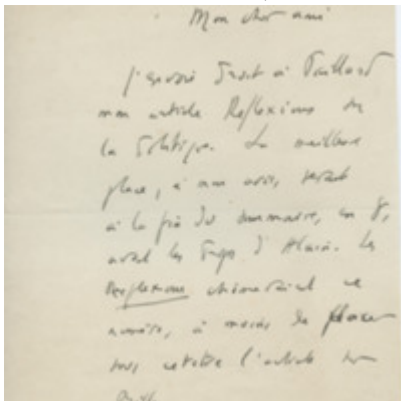 Mon cher ami
j'envoie à Paulhan
mon article Réflexions sur
la Politique. La meilleure
place, à mon avis, serait
à la fin du sommaire, en 8,
avant les Propos d'Alain. Les
Réflexions
numéro, à moins de placer
l'article sur